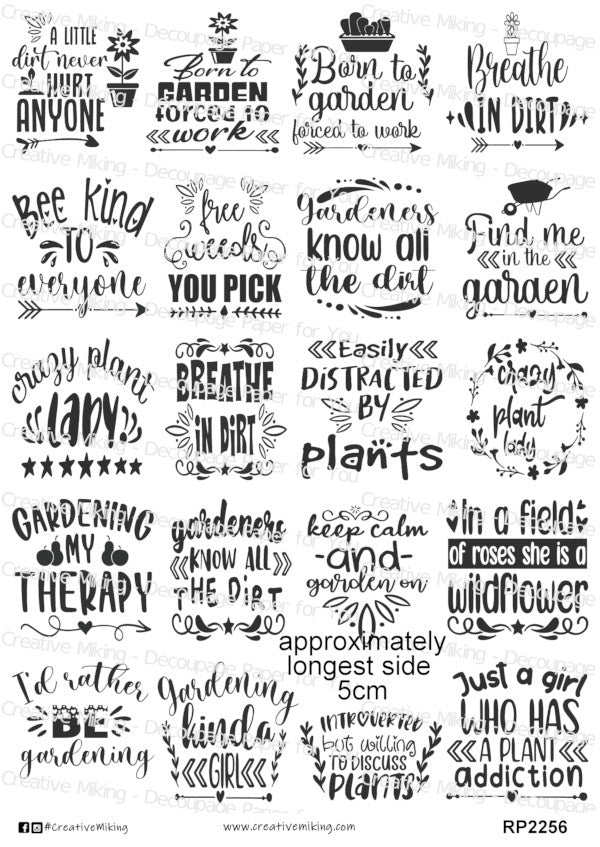 A LITTLE
dirt never
HURT
ANYONE
Born to
GARDEN
forced to
work
Born to
garden
forced to work
Breathe
IN DIRT
Bee Kind
TO
everyone
free
weeds
YOU PICK
Gardeners
know all
the dirt
Find me
in the
garden
crazy plant
LADY!
BREATHE
iN DiRT
Easily
DiSTRACTED
BY
plants
crazy
plant
lady
GARDENING
MY
THERAPY
gardeners
KNOW ALL
THE DIRT
keep calm
-and-
garden on
In a field
of roses she is a
wildflower
approximately
longest side
5cm
I'd rather
BE
gardening
Gardening
kinda
GIRL
INTROVERTED
but willing
TO DISCUSS
PLANTS
Just a girl
WHO HAS
A PLANT
addiction
Creative Miking - Decoupage Paper for You
#CreativeMiking
www.creativemiking.com
RP2256